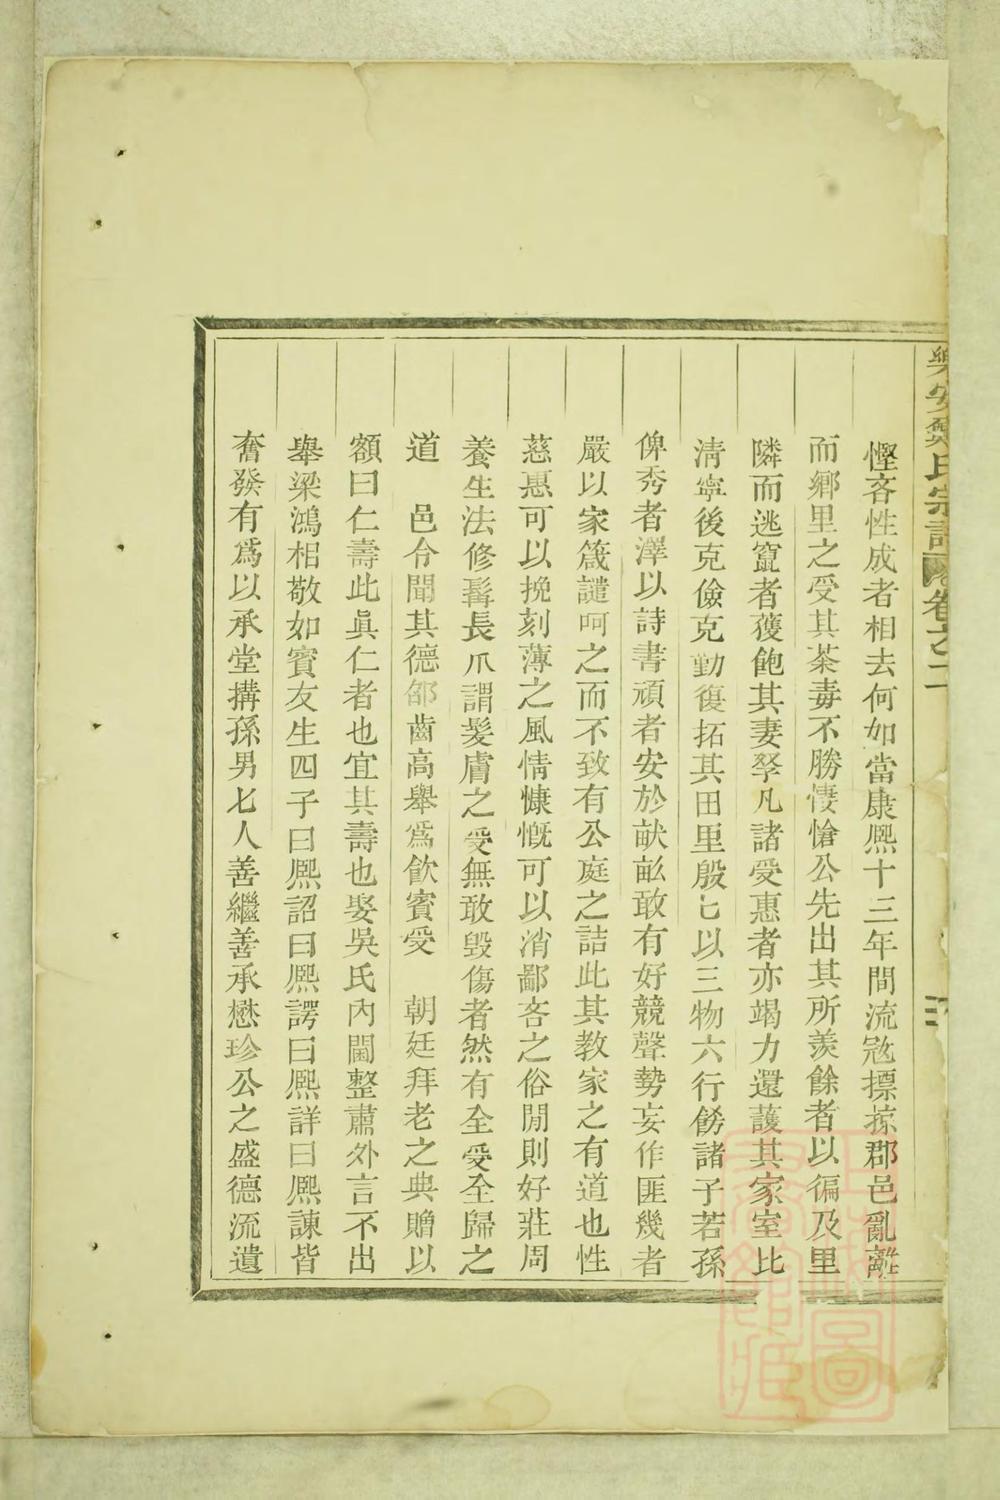 安 氏宗譜 卷之二
慳吝性成者相去何如當康熙十三年間流寇摽掠郡邑亂離
而鄉里之受其荼毒不勝悽愴公先出其所羨餘者以徧及里
隣而逃竄者獲飽其妻孥凡諸受惠者亦竭力還護其家室比
淸寧後克儉克勤復拓其田里殷匕以三物六行餝諸子若孫
俾秀者澤以詩書頑者安於畎畝敢有好競聲勢妄作匪幾者
嚴以家箴譴呵之而不致有公庭之詰此其教家之有道也性
慈惠可以挽刻薄之風情慷慨可以消鄙吝之俗閒則好莊周
養生法修髯長爪謂髮膚之受無敢毀傷者然有全受全歸之
道 邑令聞其德邵齒高舉爲飮賓受 朝廷拜老之典贈以
額曰仁壽此眞仁者也宜其壽也娶吳氏內閫整肅外言不出
舉梁鴻相敬如賓友生四子曰熈詔曰熈諤曰熈詳曰熈諫皆
奮發有爲以承堂搆孫男七人善繼善承懋珍公之盛德流遺